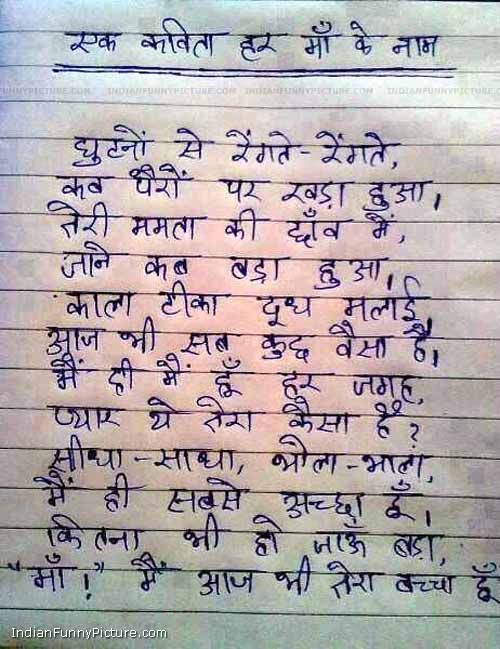 एक कविता हर माँ के नाम
INDIANFUNNYPICTURE.COM INDIANFUNNYPICTURE.COM INDIANFUNNYPICTURE.COM
घुटनों से रेंगते-रेंगते,
कब पैरों पर खड़ा हुआ,
तेरी ममता की छाँव में,
जाने कब बड़ा हुआ,
काला टीका दूध मलाई
आज भी सब कुछ वैसा है,
मैं ही मैं हूँ हर जगह,
प्यार ये तेरा कैसा है?
सीधा-साधा, भोला-भाला,
मैं ही सबसे अच्छा हूँ,
कितना भी हो जाऊँ बड़ा,
"माँ!" मैं आज भी तेरा बच्चा हूँ
IndianFunnyPicture.com